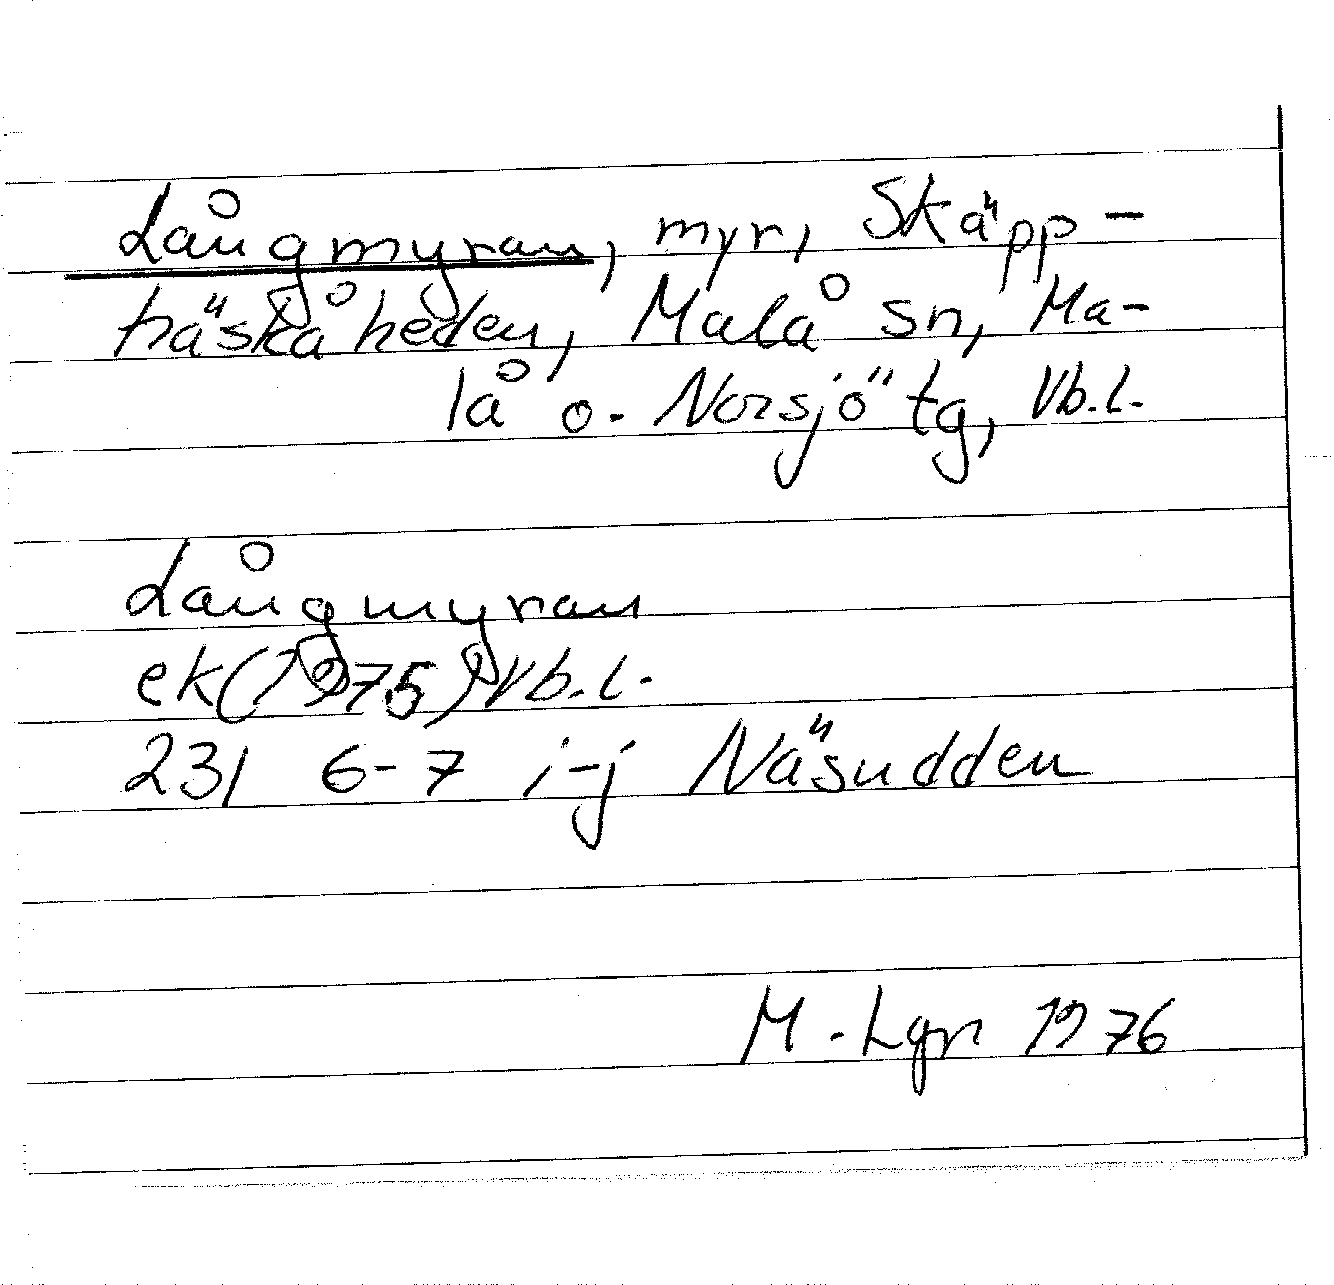 Långmyran, myr, Skäpp-
träskåheden, Malå sn, Ma-
lå o. Norsjö tg, Vb.l.
Långmyran
ek (1975) Vb.l.
231 6-7 i-j Näsudden
M. Lgn 1976